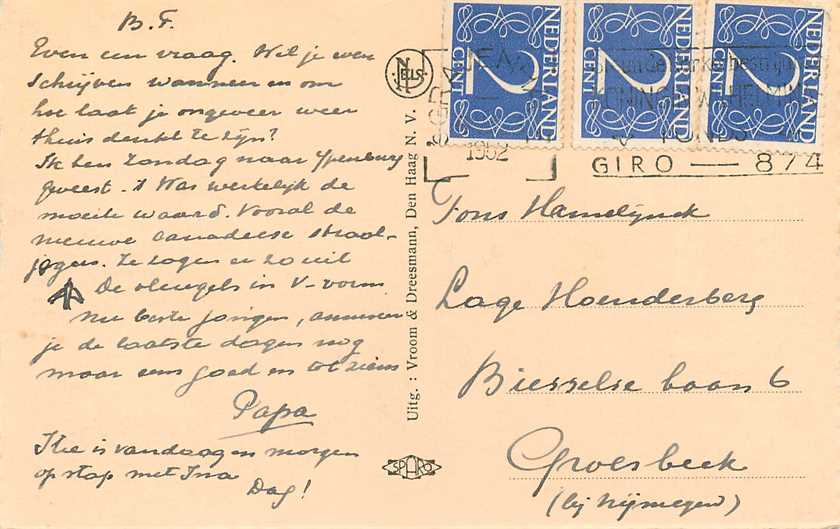 B.F.
Even een vraag. Wil je even
schrijven wanneer en om
hoe laat je ongeveer weer
thuis denkt te zijn?
Ik ben Zondag naar Ypenburg
geweest. 't Was werkelijk de
moeite waard. Vooral de
nieuwe Canadeese straal-
jagers. Ze zagen er zo uit
De vleugels in V-vorm
Nu beste jongen, amuseer
je de laatste dagen nog
maar eens goed en tot ziens
Papa
is vandaag en morgen
op stap met Ina
Dag!
NELS
Uitg. : Vroom & Dreesmann, Den Haag N. V.
SPARO
NEDERLAND
2
CENT
NEDERLAND
2
CENT
NEDERLAND
2
CENT
'S GRAVENHAGE
1952
KONINGIN WILHELMINA
FONDS
GIRO — 874
Fons Hamelijnck
Lage Hoenderberg
Biesselse baan 6
Groesbeek
(bij Nijmegen)